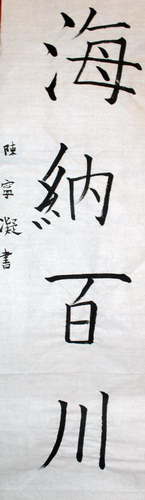 海納百川
陸寧凝書